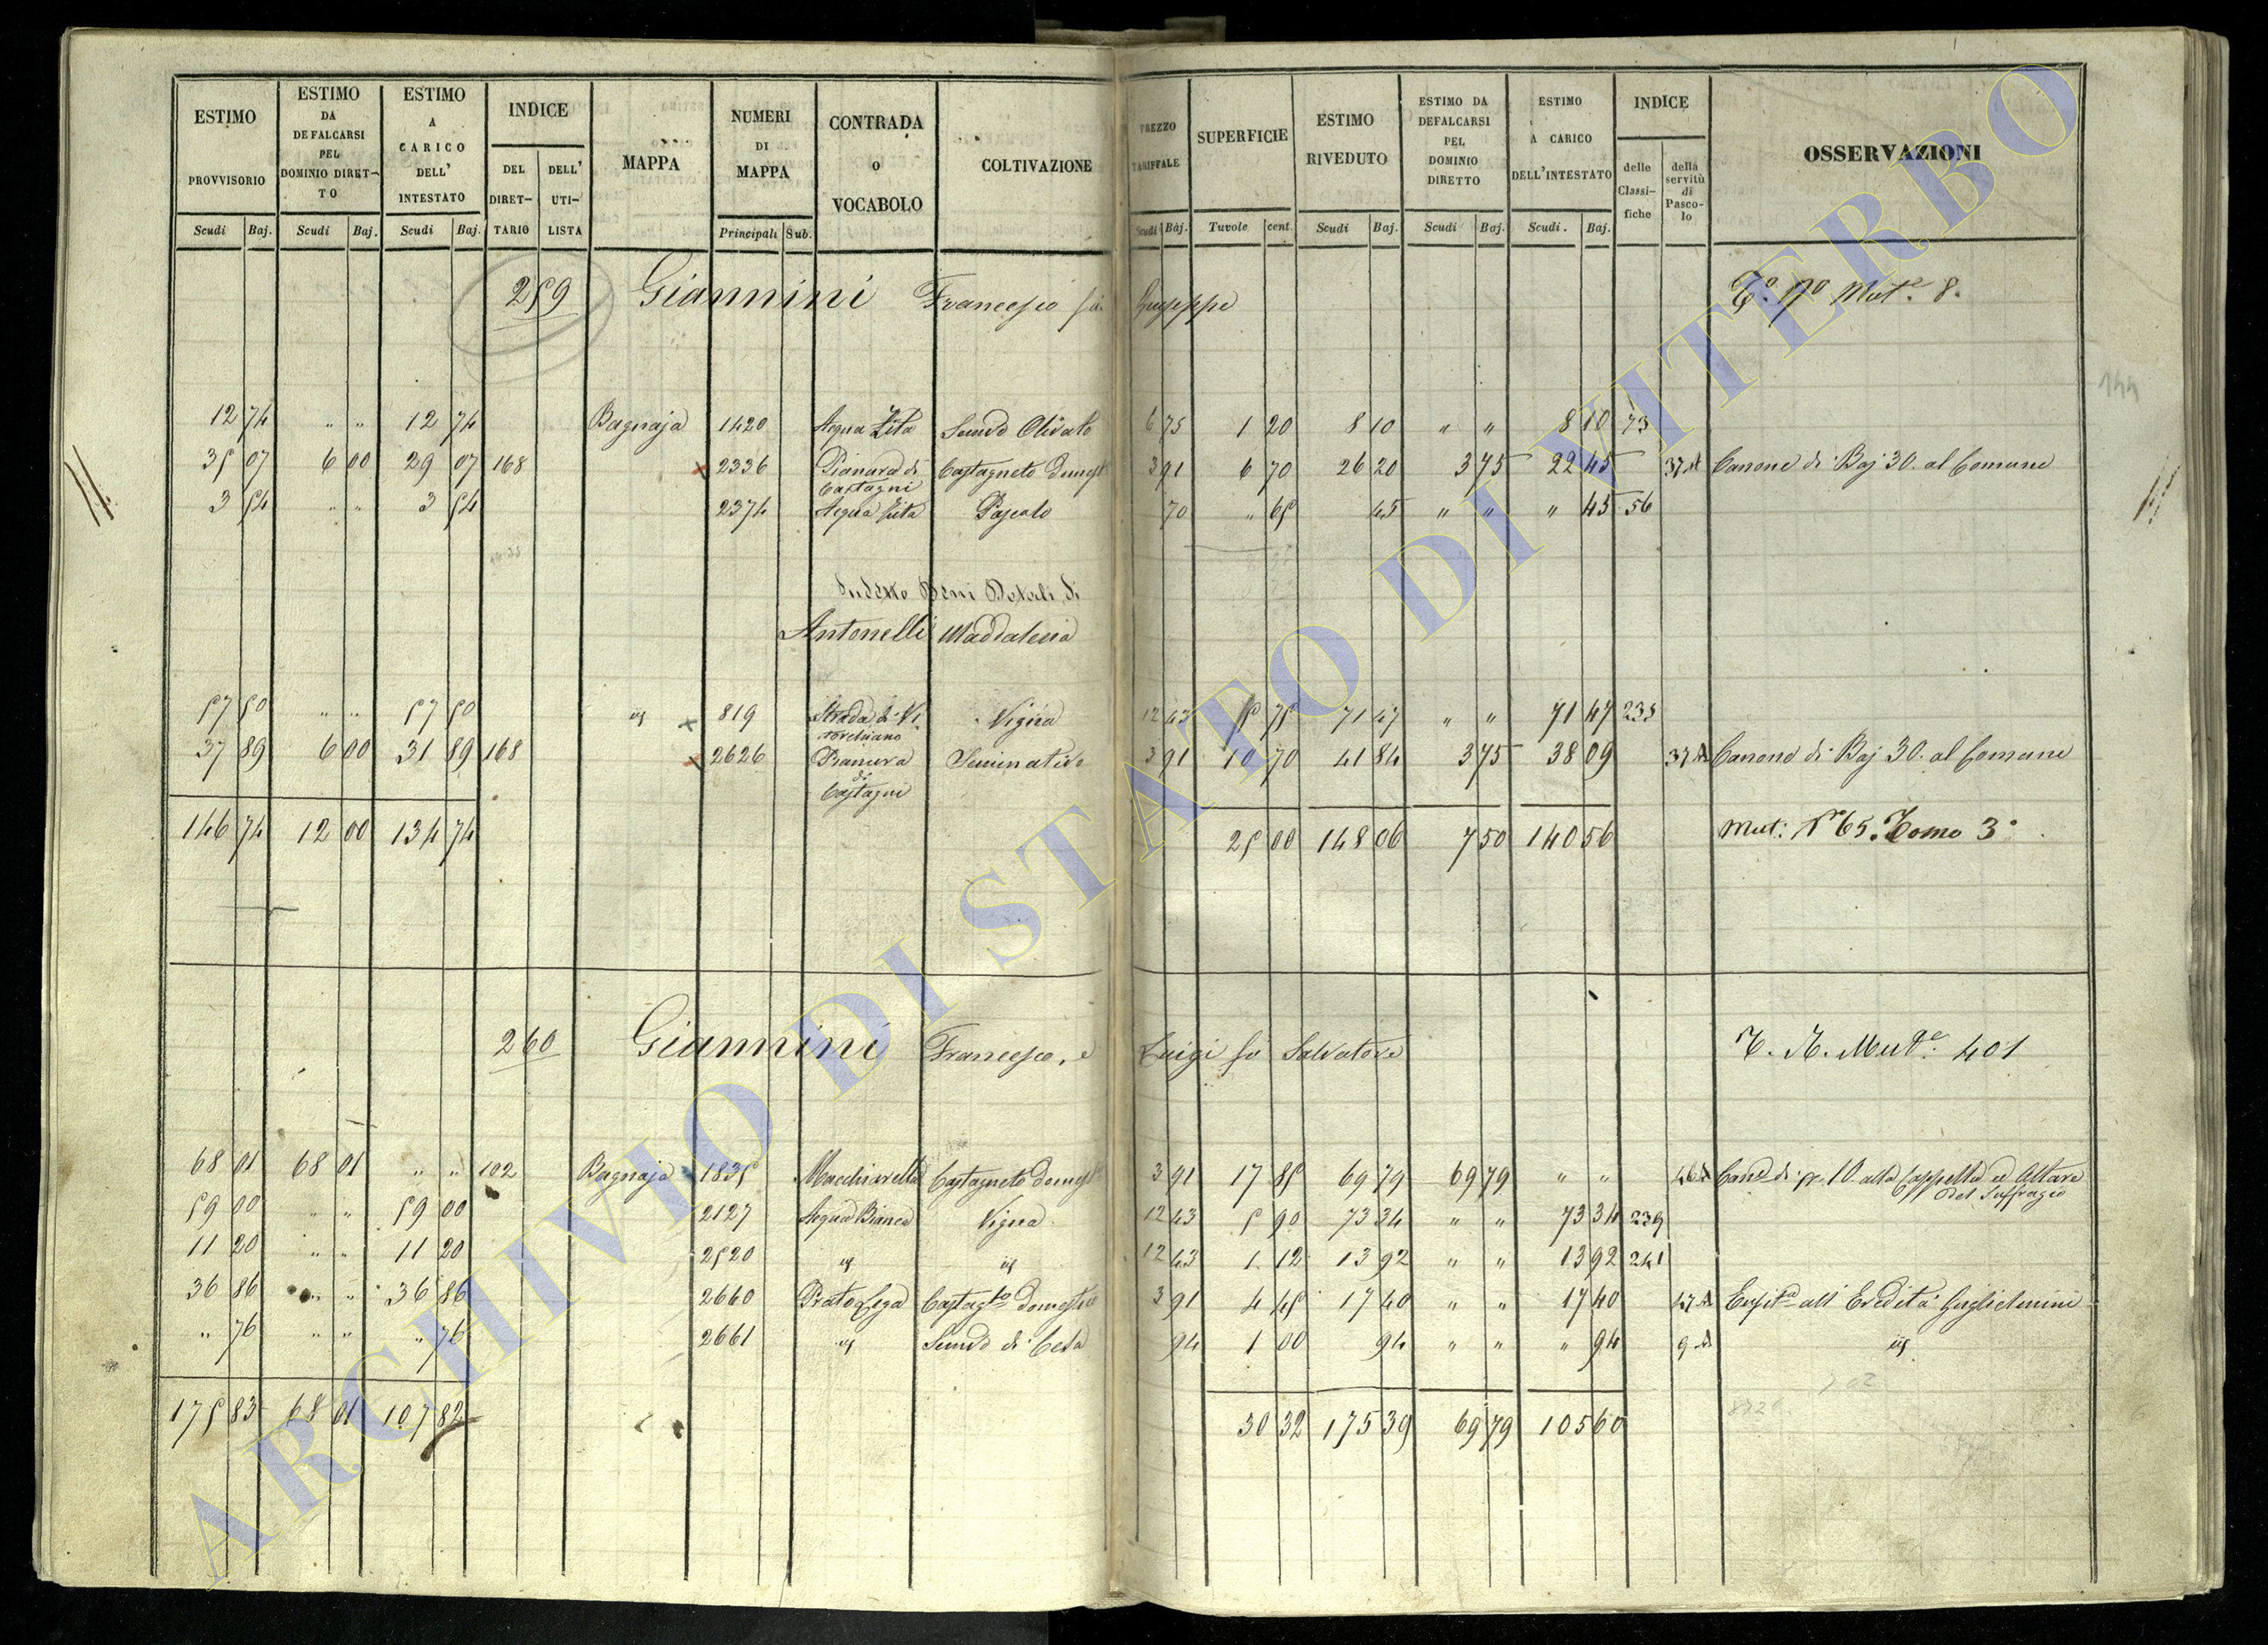 ESTIMO PROVVISORIO Scudi Baj.
ESTIMO DA DEFALCARSI PEL DOMINIO DIRETTO Scudi Baj.
ESTIMO A CARICO DELL' INTESTATO Scudi Baj.
INDICE DEL DIRETTARIO DELL' UTILISTA
MAPPA
NUMERI DI MAPPA Principali Sub.
CONTRADA o VOCABOLO
COLTIVAZIONE
PREZZO TARIFFALE Scudi Baj.
SUPERFICIE Tavole cent.
ESTIMO RIVEDUTO Scudi Baj.
ESTIMO DA DEFALCARSI PEL DOMINIO DIRETTO Scudi Baj.
ESTIMO A CARICO DELL'INTESTATO Scudi. Baj.
INDICE delle Classifiche della servitù di Pascolo
OSSERVAZIONI
259 Giannini Francesco fù Giuseppe Mut.e 8.
144
12 74 " " 12 74 Bagnaja 1420 Acqua Zita Semvo Olivato 6 75 1 20 8 10 " " 8 10 73
35 07 6 00 29 07 168 2336 Pianura di Castagni Castagneto Domest 3 91 6 70 26 20 3 75 22 45 37A Canone di Baj 30. al Comune
3 54 " " 3 54 2374 Acqua Zita Pascolo 70 " 65 45 " " " 45 56
Sudetto Beni Dotali di
Antonelli Maddalena
57 50 " " 57 50 id 819 Strada di Vitorchiano Vigna 12 43 5 75 71 47 " " 71 47 235
37 89 6 00 31 89 168 2626 Pianura di Castagni Seminativo 3 91 10 70 41 84 3 75 38 09 37A Canone di Baj 30. al Comune
146 74 12 00 134 74 25 00 148 06 7 50 140 56 Mut: No 65. Tomo 3o
260 Giannini Francesco, e Luigi fù Salvatore Mut.e 401
68 01 68 01 " " 102 Bagnaja 1835 Macchiarella Castagneto domest 3 91 17 85 69 79 69 79 " " 46A Cane di 10 alla Cappella ed Altare del Suffragio
59 00 " " 59 00 2127 Acqua Bianca Vigna 12 43 5 90 73 34 " " 73 34 239
11 20 " " 11 20 2520 id id 12 43 1 12 13 92 " " 13 92 241
36 86 " " 36 86 2660 Prato Lega Castagto domestico 3 91 4 45 17 40 " " 17 40 47A all' Eredità Guglielmini
" 76 " " " 76 2661 id Semvo di Cesa 94 1 00 94 " " " 94 9A id
175 83 68 01 107 82 30 32 175 39 69 79 105 60
ARCHIVIO DI STATO DI VITERBO